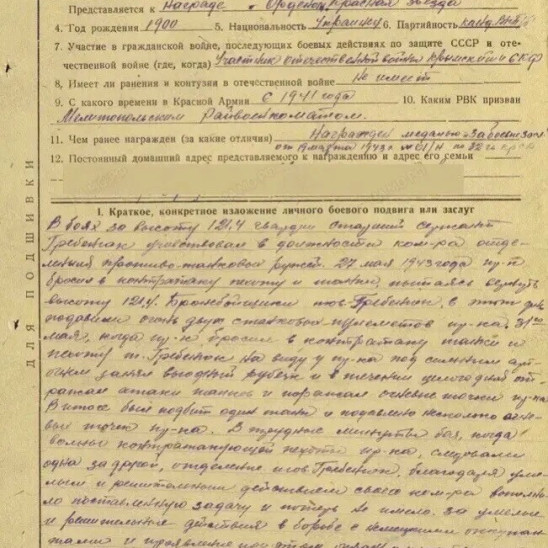 Представляется к Награде "Орденом Красная звезда
4. Год рождения 1900 5. Национальность Украинец 6. Партийность канд. ВКП/б/
7. Участие в гражданской войне, последующих боевых действиях по защите СССР и оте-
чественной войне (где, когда) Участник отечественной войны Крымский и СКФ
8. Имеет ли ранения и контузии в отечественной войне Не имеет
9. С какого времени в Красной Армии С 1941 года 10. Каким РВК призван
Мелитопольским Райвоенкоматом.
11. Чем ранее награжден (за какие отличия) Награжден медалью "За боевые
от 19 марта 1943 г № 01/н по
12. Постоянный домашний адрес представляемого к награждению и адрес его семьи
ДЛЯ ПОДШИВКИ
I. Краткое, конкретное изложение личного боевого подвига или заслуг
В боях за высоту 121,4 гвардии старший сержант
Гребенюк участвовал в должности ком-ра отде-
ления противо-танковых ружей. 27 мая 1943 года пр-к
бросил в контратаку пехоту и танки, пытаясь вернуть
высоту 121,4. Бронебойщики тов. Гребенюк, в этот день
подавили огонь двух станковых пулеметов пр-ка, 31го
мая, когда пр-к бросил в контратаку танки и
пехоту т. Гребенюк на виду у пр-ка под сильным арт-
огнем занял выгодный рубеж и в течении целого дня от-
ражал атаки танков и поражал огневые точки пр-ка
В итоге был подбит один танк и подавлено несколько огне-
вых точек пр-ка. В трудные минуты боя, когда
волны контратакующей пехоты пр-ка, следовали
одна за другой, отделение тов. Гребенюк, благодаря уме-
лым и решительным действиям своего ком-ра выполни-
ло поставленную задачу и потерь не имело. За умелые
и решительные действия в борьбе с немецкими оккупан-
тами и проявленное при этом